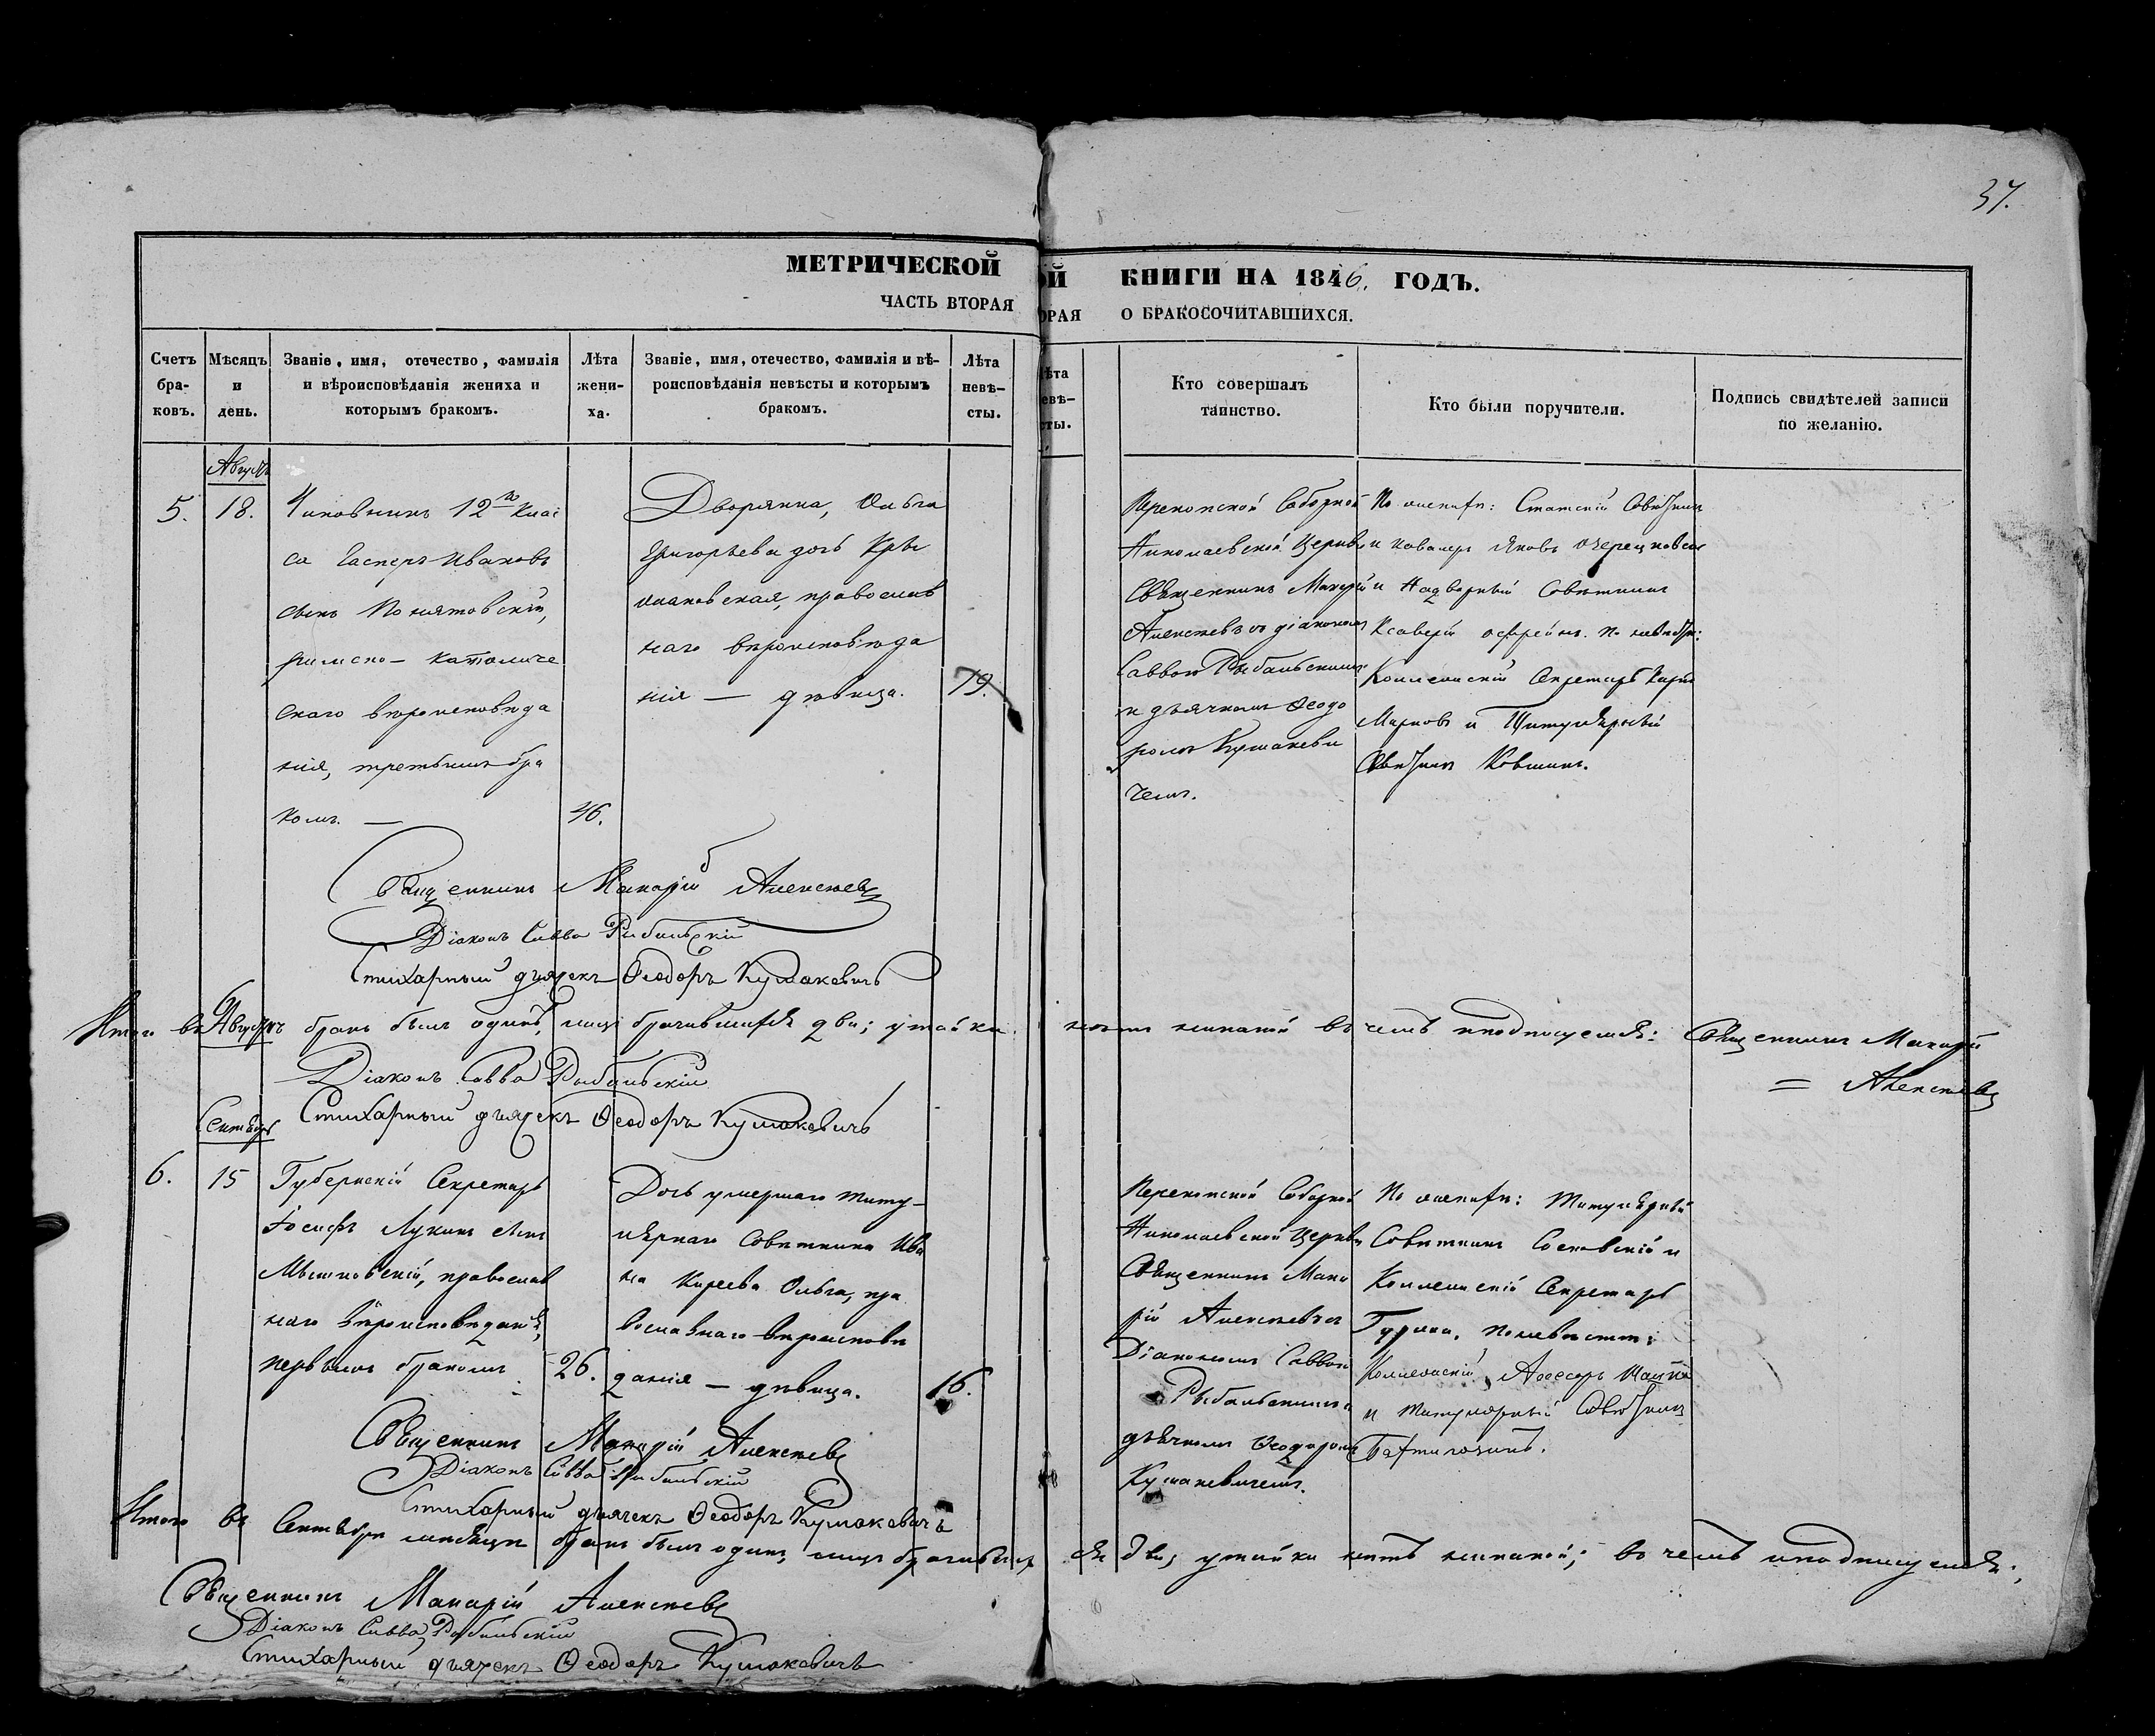 37.
МЕТРИЧЕСКОЙ
ЧАСТЬ ВТОРАЯ
ОЙ КНИГИ НА 1846. ГОДЪ.
ОРАЯ О БРАКОСОЧИТАВШИХСЯ.
Счетъ
бра-
ковъ.
Мѣсяцъ
и
день.
Званіе, имя, отечество, фамилія
и вѣроисповѣданія жениха и
которымъ бракомъ.
Лѣта
жени-
ха.
Званіе, имя, отечество, фамилія и вѣ-
роисповѣданія невѣсты и которымъ
бракомъ.
Лѣта
невѣ-
сты.
ѣта
евѣ-
сты.
Кто совершалъ
таинство.
Кто были поручители.
Подпись свидѣтелей записи
по желанію.
Августъ
5.
18.
Чиновникъ 12го клас
са Гасперъ Ивановъ
сынъ Понятовскій,
римско-католиче
скаго вѣроисповѣда
нія, третьимъ бра
комъ. —
46.
Дворянка, Ольга
Григорьева дочь
православ
наго вѣроисповѣда
нія — дѣвица.
19.
Перекопской Соборной
Николаевской Церкви
Священникъ Макарій
Алексѣевъ съ діакономъ
Саввою Рыбальскимъ
и дьячкомъ Ѳеодо
ромъ Кушакеви
чемъ.
По женихѣ: Статскій Совѣтникъ
и кавалеръ Яковъ
и Надворный Совѣтникъ
Ксаверій По невѣстѣ:
Коллежскій Секретарь Карпъ
Марковъ и Титулярный
Совѣтникъ Ковшинъ.
Священникъ Макарій Алексѣевъ
Діаконъ Савва Рибальскій
Стихарный дьячекъ Ѳеодоръ Кушакевичъ
Итого въ Августѣ бракъ былъ одинъ, лицъ брачившихся два; утайки нѣтъ никакой въ чемъ и подписуемся: Священникъ Макарій
= Алексѣевъ
Діаконъ Савва Рыбальскій
Стихарный дьячекъ Ѳеодоръ Кушакевичъ
Сентябрь
6.
15
Губернскій Секретарь
Іосифъ Лукинъ сынъ
православ
наго вѣроисповѣданія,
первымъ бракомъ.
26.
Дочь умершаго титу-
лярнаго Совѣтника Ива
на Кирѣева Ольга, пра
вославнаго вѣроисповѣ
данія — дѣвица.
16.
Перекопской Соборной
Николаевской Церкви
Священникъ Мака
рій Алексѣевъ съ
Діакономъ Саввою
Рыбальскимъ и
дьячкомъ Ѳеодоромъ
Кушакевичемъ.
По женихѣ: Титулярный
Совѣтникъ и
Коллежскій Секретарь
По невѣстѣ:
Коллежскій Ассесоръ
и титулярный Совѣтникъ
Священникъ Макарій Алексѣевъ
Діаконъ Савва Рибальскій
Стихарный дьячекъ Ѳеодоръ Кушакевичъ
Итого въ Сентябрѣ мѣсяцѣ бракъ былъ одинъ, лицъ брачившихся два; утайки нѣтъ никакой; въ чемъ и подписуемся:
Священникъ Макарій Алексѣевъ
Діаконъ Савва Рибальскій
Стихарный дьячекъ Ѳеодоръ Кушакевичъ